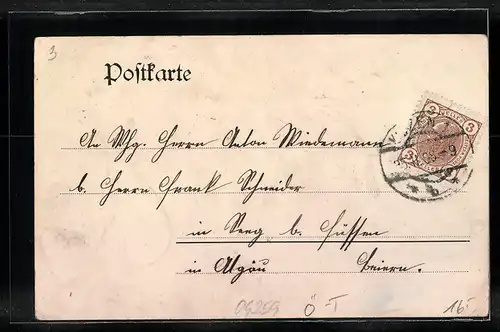 3
Postkarte
An Whg. Herrn Anton Wiedemann
b. Herrn Frank Schneider
in Seeg b. Füssen
in Algäu Beiern.
3 3
04255 Ö-T 16.-